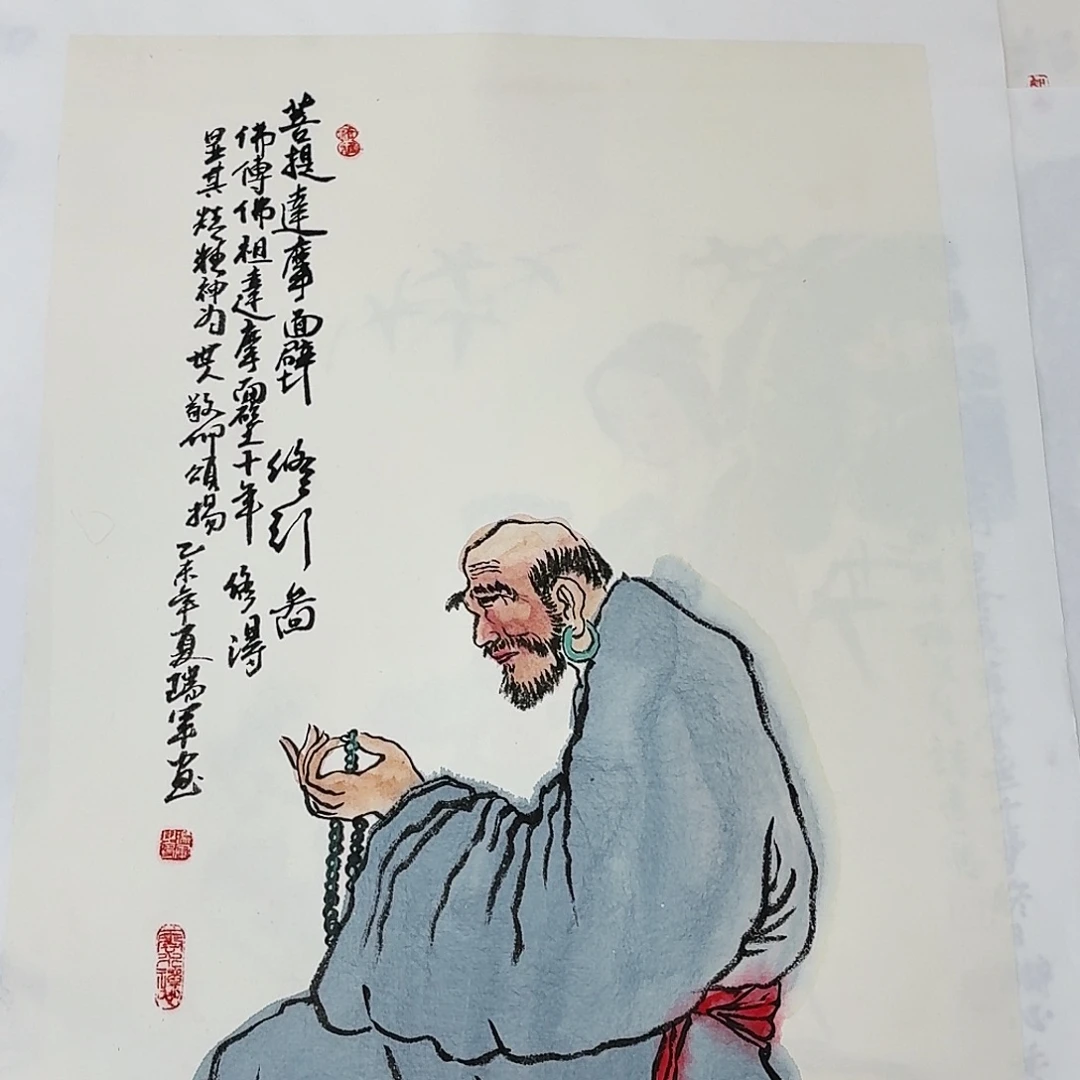 菩提達摩面壁修行圖
佛傳佛祖達摩面壁十年修得
显其精神为世人敬仰頌揚乙未年夏瑞軍画